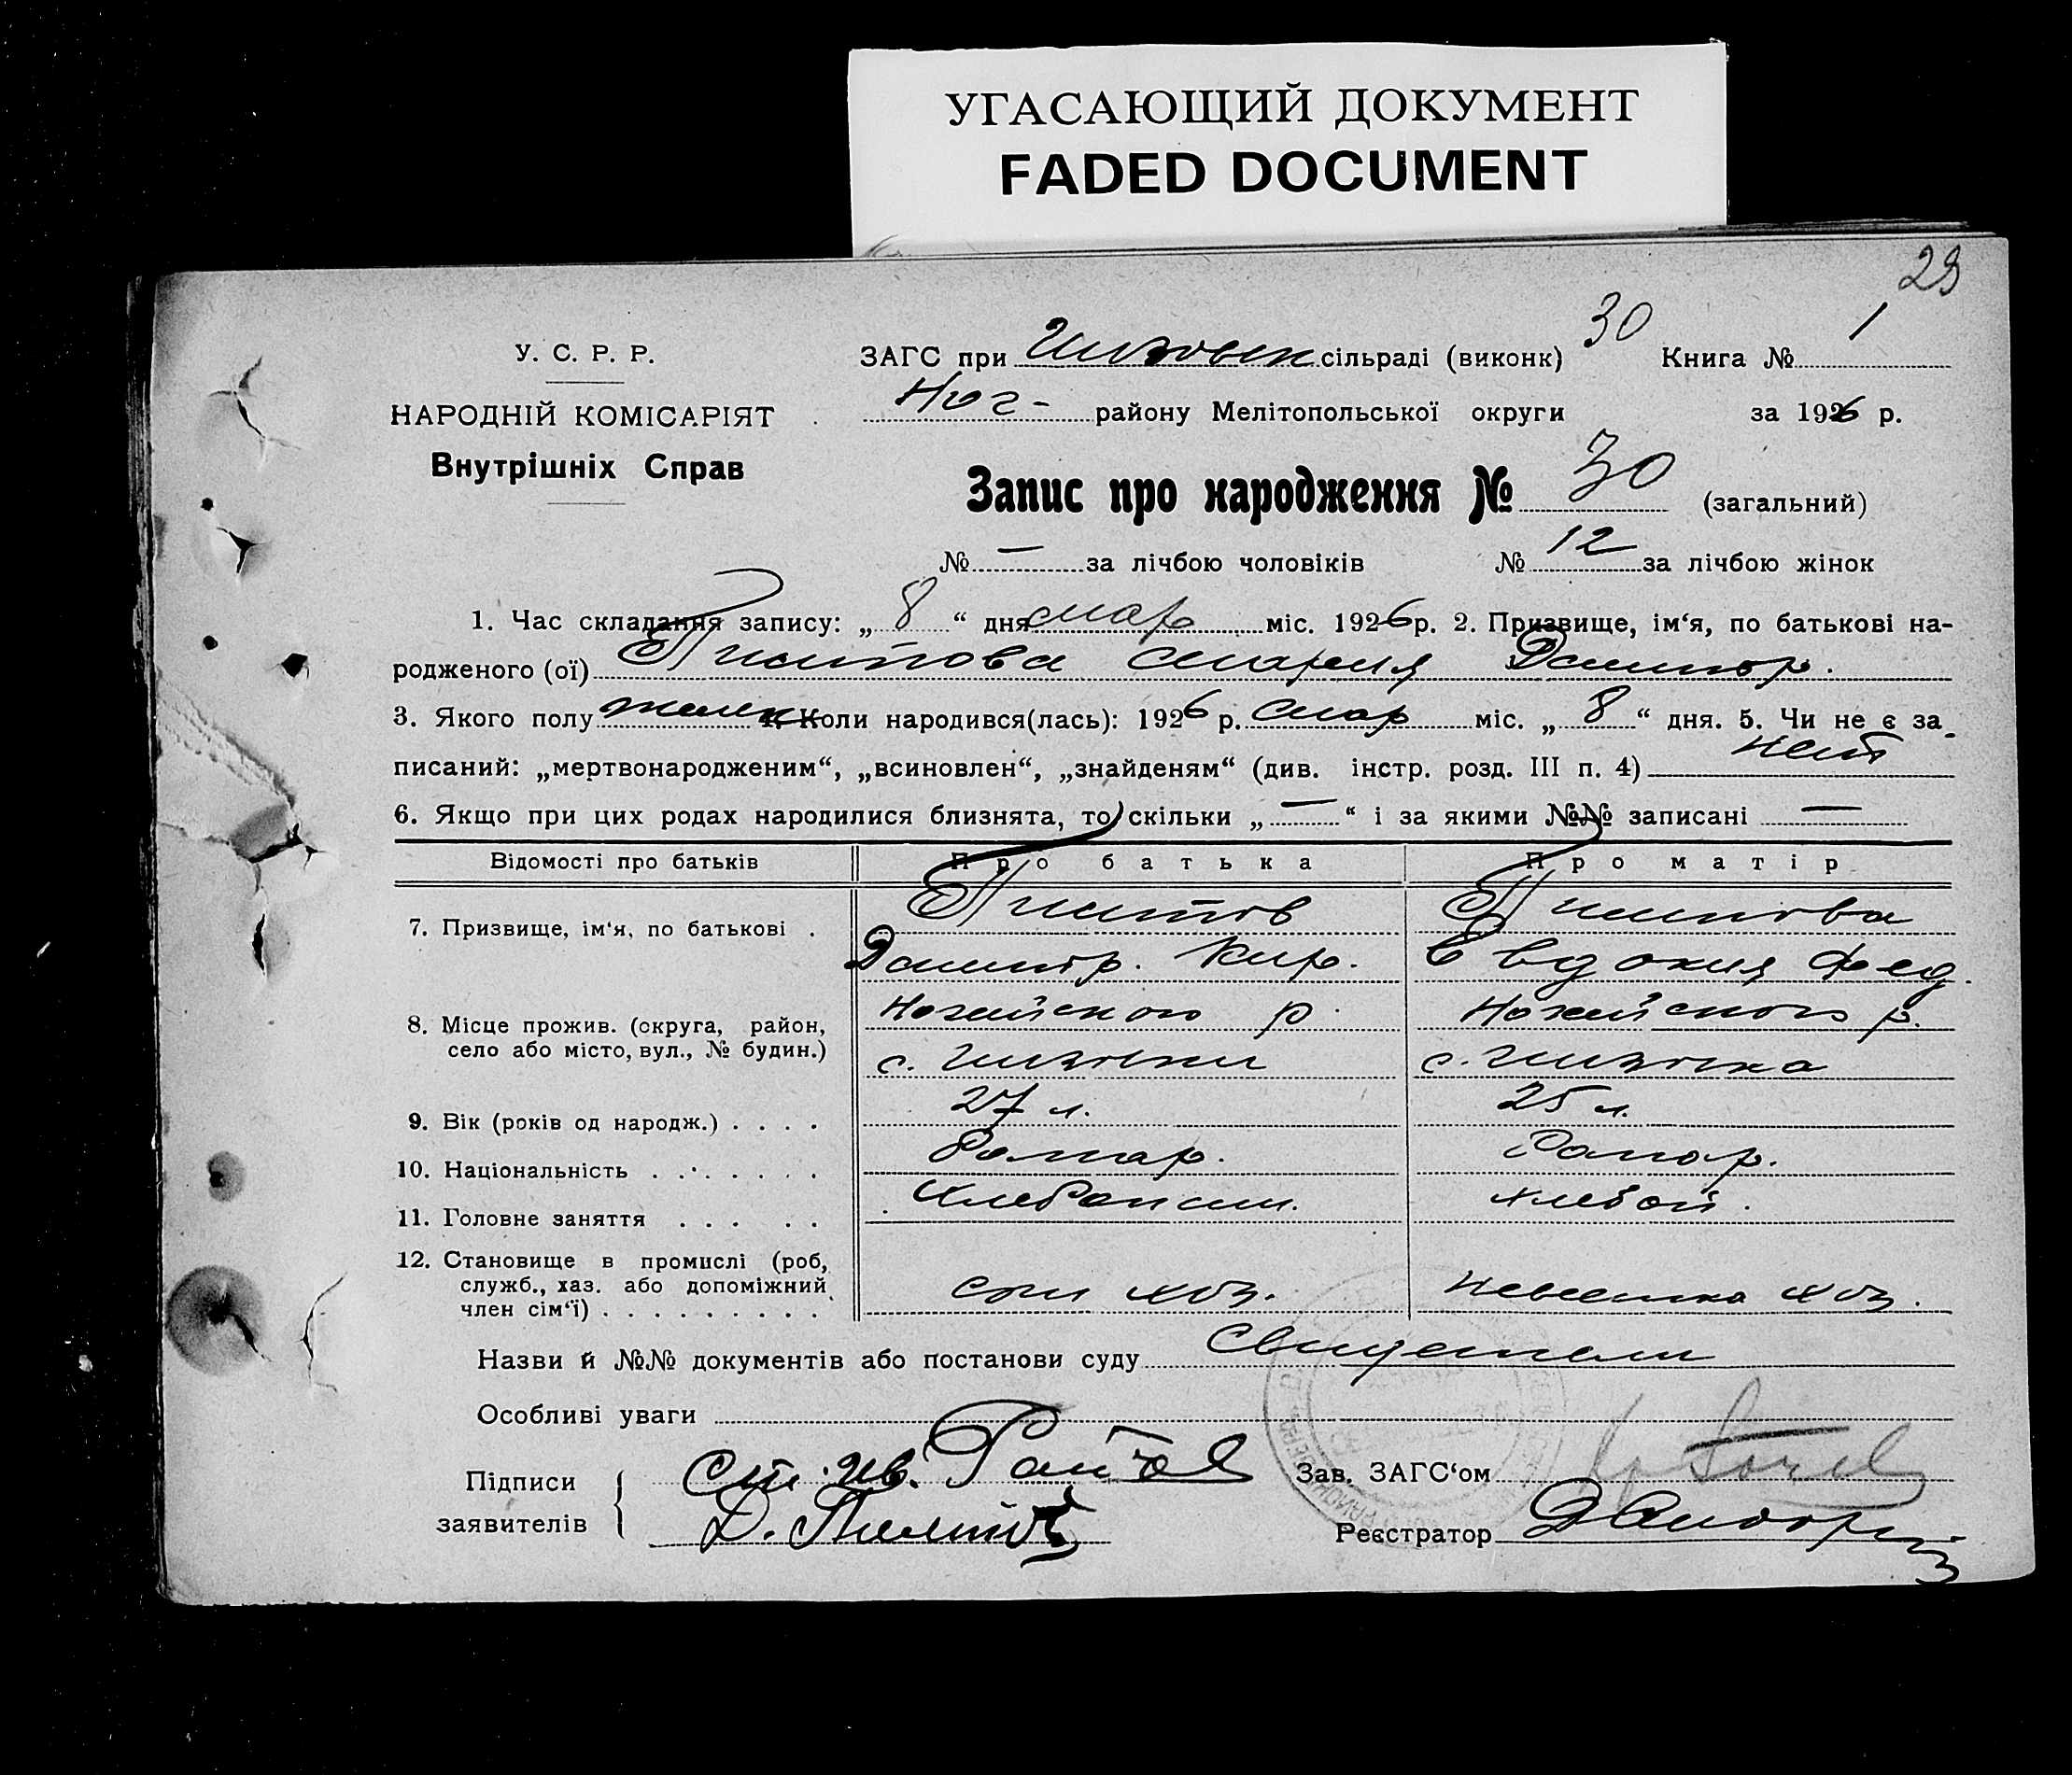 УГАСАЮЩИЙ ДОКУМЕНТ
FADED DOCUMENT
29
У. С. Р. Р.
НАРОДНІЙ КОМІСАРІЯТ
Внутрішніх Справ
30
ЗАГС при сільраді (виконк) Книга № 1
Ног- району Мелітопольської округи за 1926 р.
Запис про народження № 30 (загальний)
№ — за лічбою чоловіків № 12 за лічбою жінок
1. Час складання запису: „ 8 “ дня мар міс. 1926 р. 2. Призвище, ім‘я, по батькові на-
родженого (ої) Мария
3. Якого полу женск 4. Коли народився(лась): 1926 р. мар міс. „ 8 “ дня. 5. Чи не є за-
писаний: „мертвонародженим“, „всиновлен“, „знайденям“ (див. інстр. розд. III п. 4) нет
6. Якщо при цих родах народилися близнята, то скільки „ — “ і за якими №№ записані —
Відомості про батьків Про батька Про матір
7. Призвище, ім‘я, по батькові .
Димитр. Кир. Евдокия Фед.
8. Місце прожив. (округа, район, село або місто, вул., № будин.)
Ногайского р. Ногайского р.
с. с.
9. Вік (років од народж.) . . . . 27 л. 25 л.
10. Національність . . . . . . . Болгар. Болгар.
11. Головне заняття . . . . . Хлебопаш. хлебоп.
12. Становище в промислі (роб, служб., хаз. або допоміжний член сім‘ї) . . . . . . . . . сын хоз. невестка хоз.
Назви й №№ документів або постанови суду Свидетели
Особливі уваги
Підписи заявителів
Ст. Ив.
Д.
Зав. ЗАГС‘ом
Реєстратор